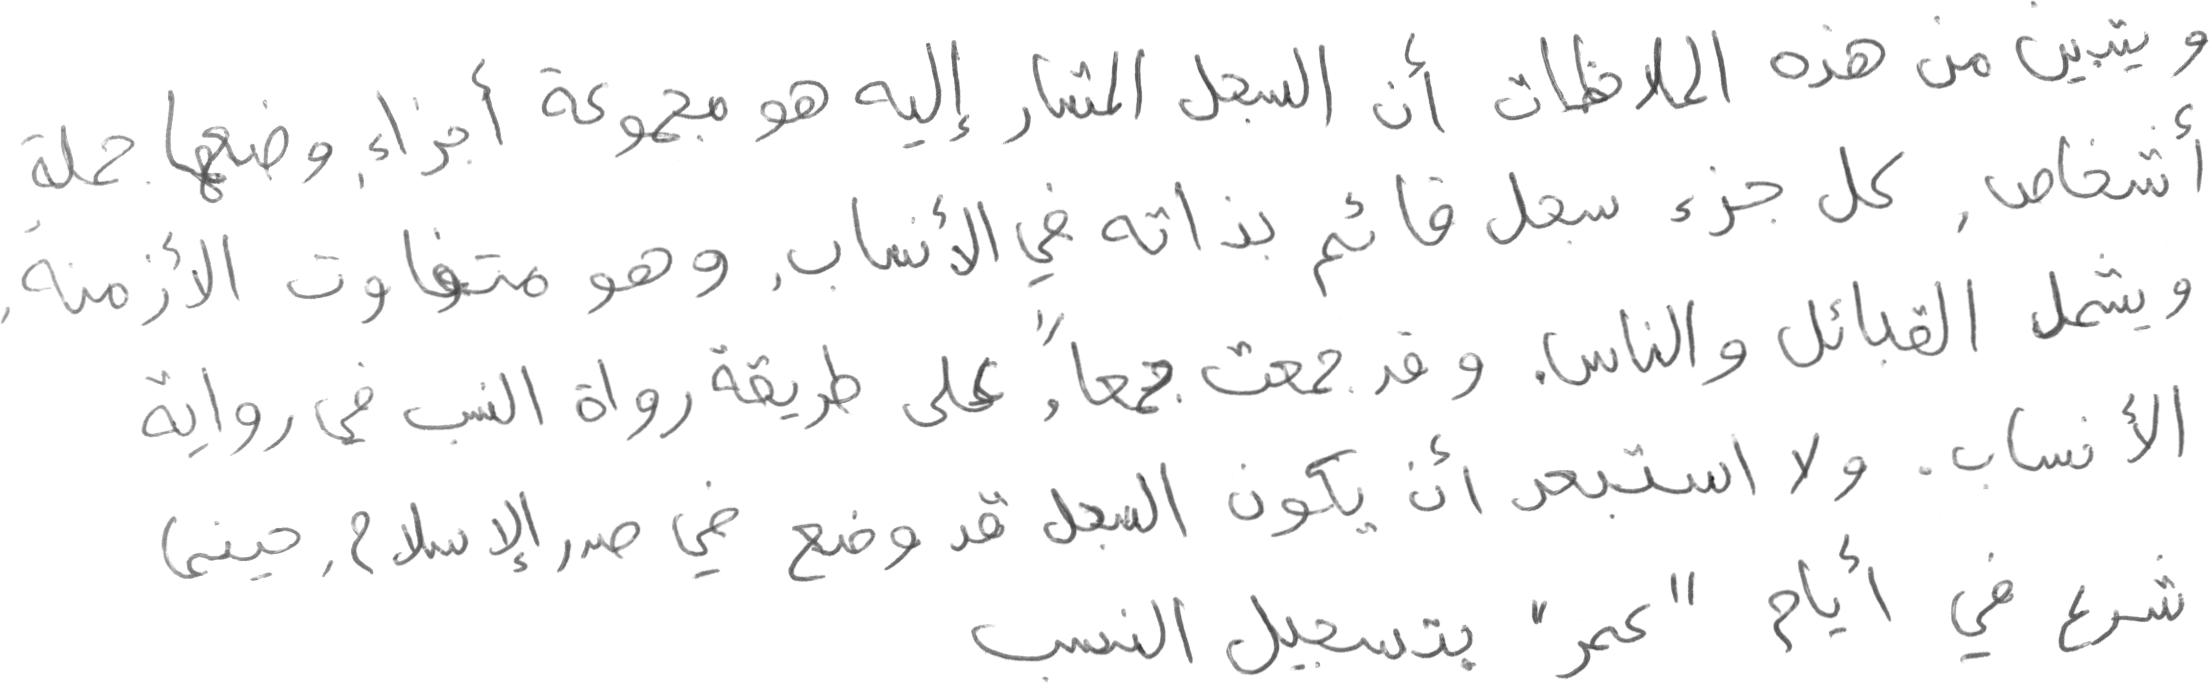 ويتبين من هذه الملاحظات أن السجل المشار إليه هو مجموعة أجزاء, وضعها جملة
أشخاص, كل جزء سجل قائم بذاته في الأنساب, وهو متفاوت الأزمنة,
ويشمل القبائل والناس. وقد جمعت جمعاً, على طريقة رواة النسب في رواية
الأنساب. ولا استبعد أن يكون السجل قد وضع في صدر الإسلام, حينما
شرع في أيام "عمر" بتسجيل النسب